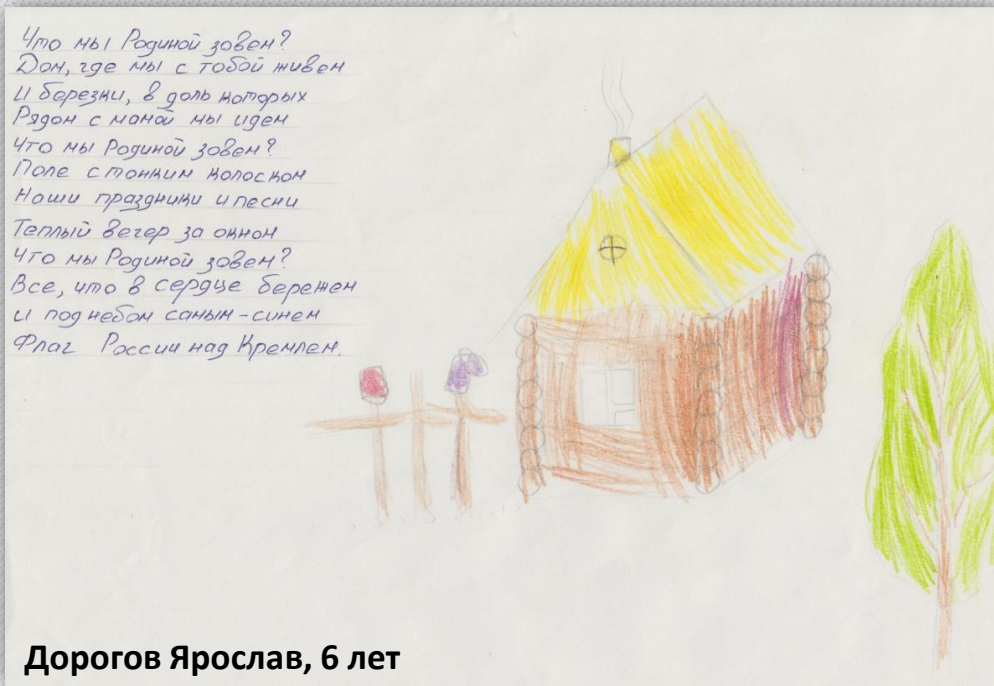 Что мы Родиной зовем?
Дом, где мы с тобой живем
И березки, в доль которых
Рядом с мамой мы идем
Что мы Родиной зовем?
Поле с тонким колоском
Наши праздники и песни
Теплый вечер за окном
Что мы Родиной зовем?
Все, что в сердце бережем
и под небом самым-синем
Флаг России над Кремлем.
Дорогов Ярослав, 6 лет